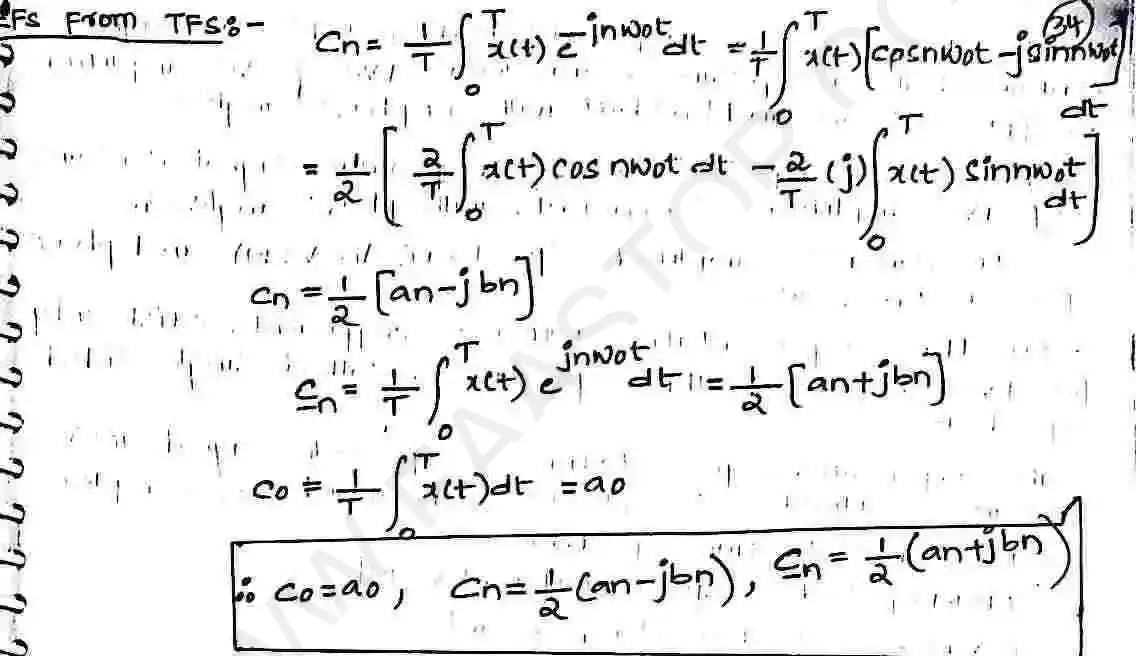 EFS From TFS:-
34
Cn = 1/T ∫₀ᵀ x(t) e^-jnwot dt = 1/T ∫₀ᵀ x(t) [cosnwot - j sinnwot] dt
= 1/2 [ 2/T ∫₀ᵀ x(t) cos nwot dt - 2/T (j) ∫₀ᵀ x(t) sinnwot dt ]
Cn = 1/2 [an - jbn]
C-n = 1/T ∫₀ᵀ x(t) e^jnwot dt = 1/2 [an + jbn]
Co = 1/T ∫₀ᵀ x(t) dt = ao
∴ Co = ao, Cn = 1/2 (an - jbn), C-n = 1/2 (an + jbn)